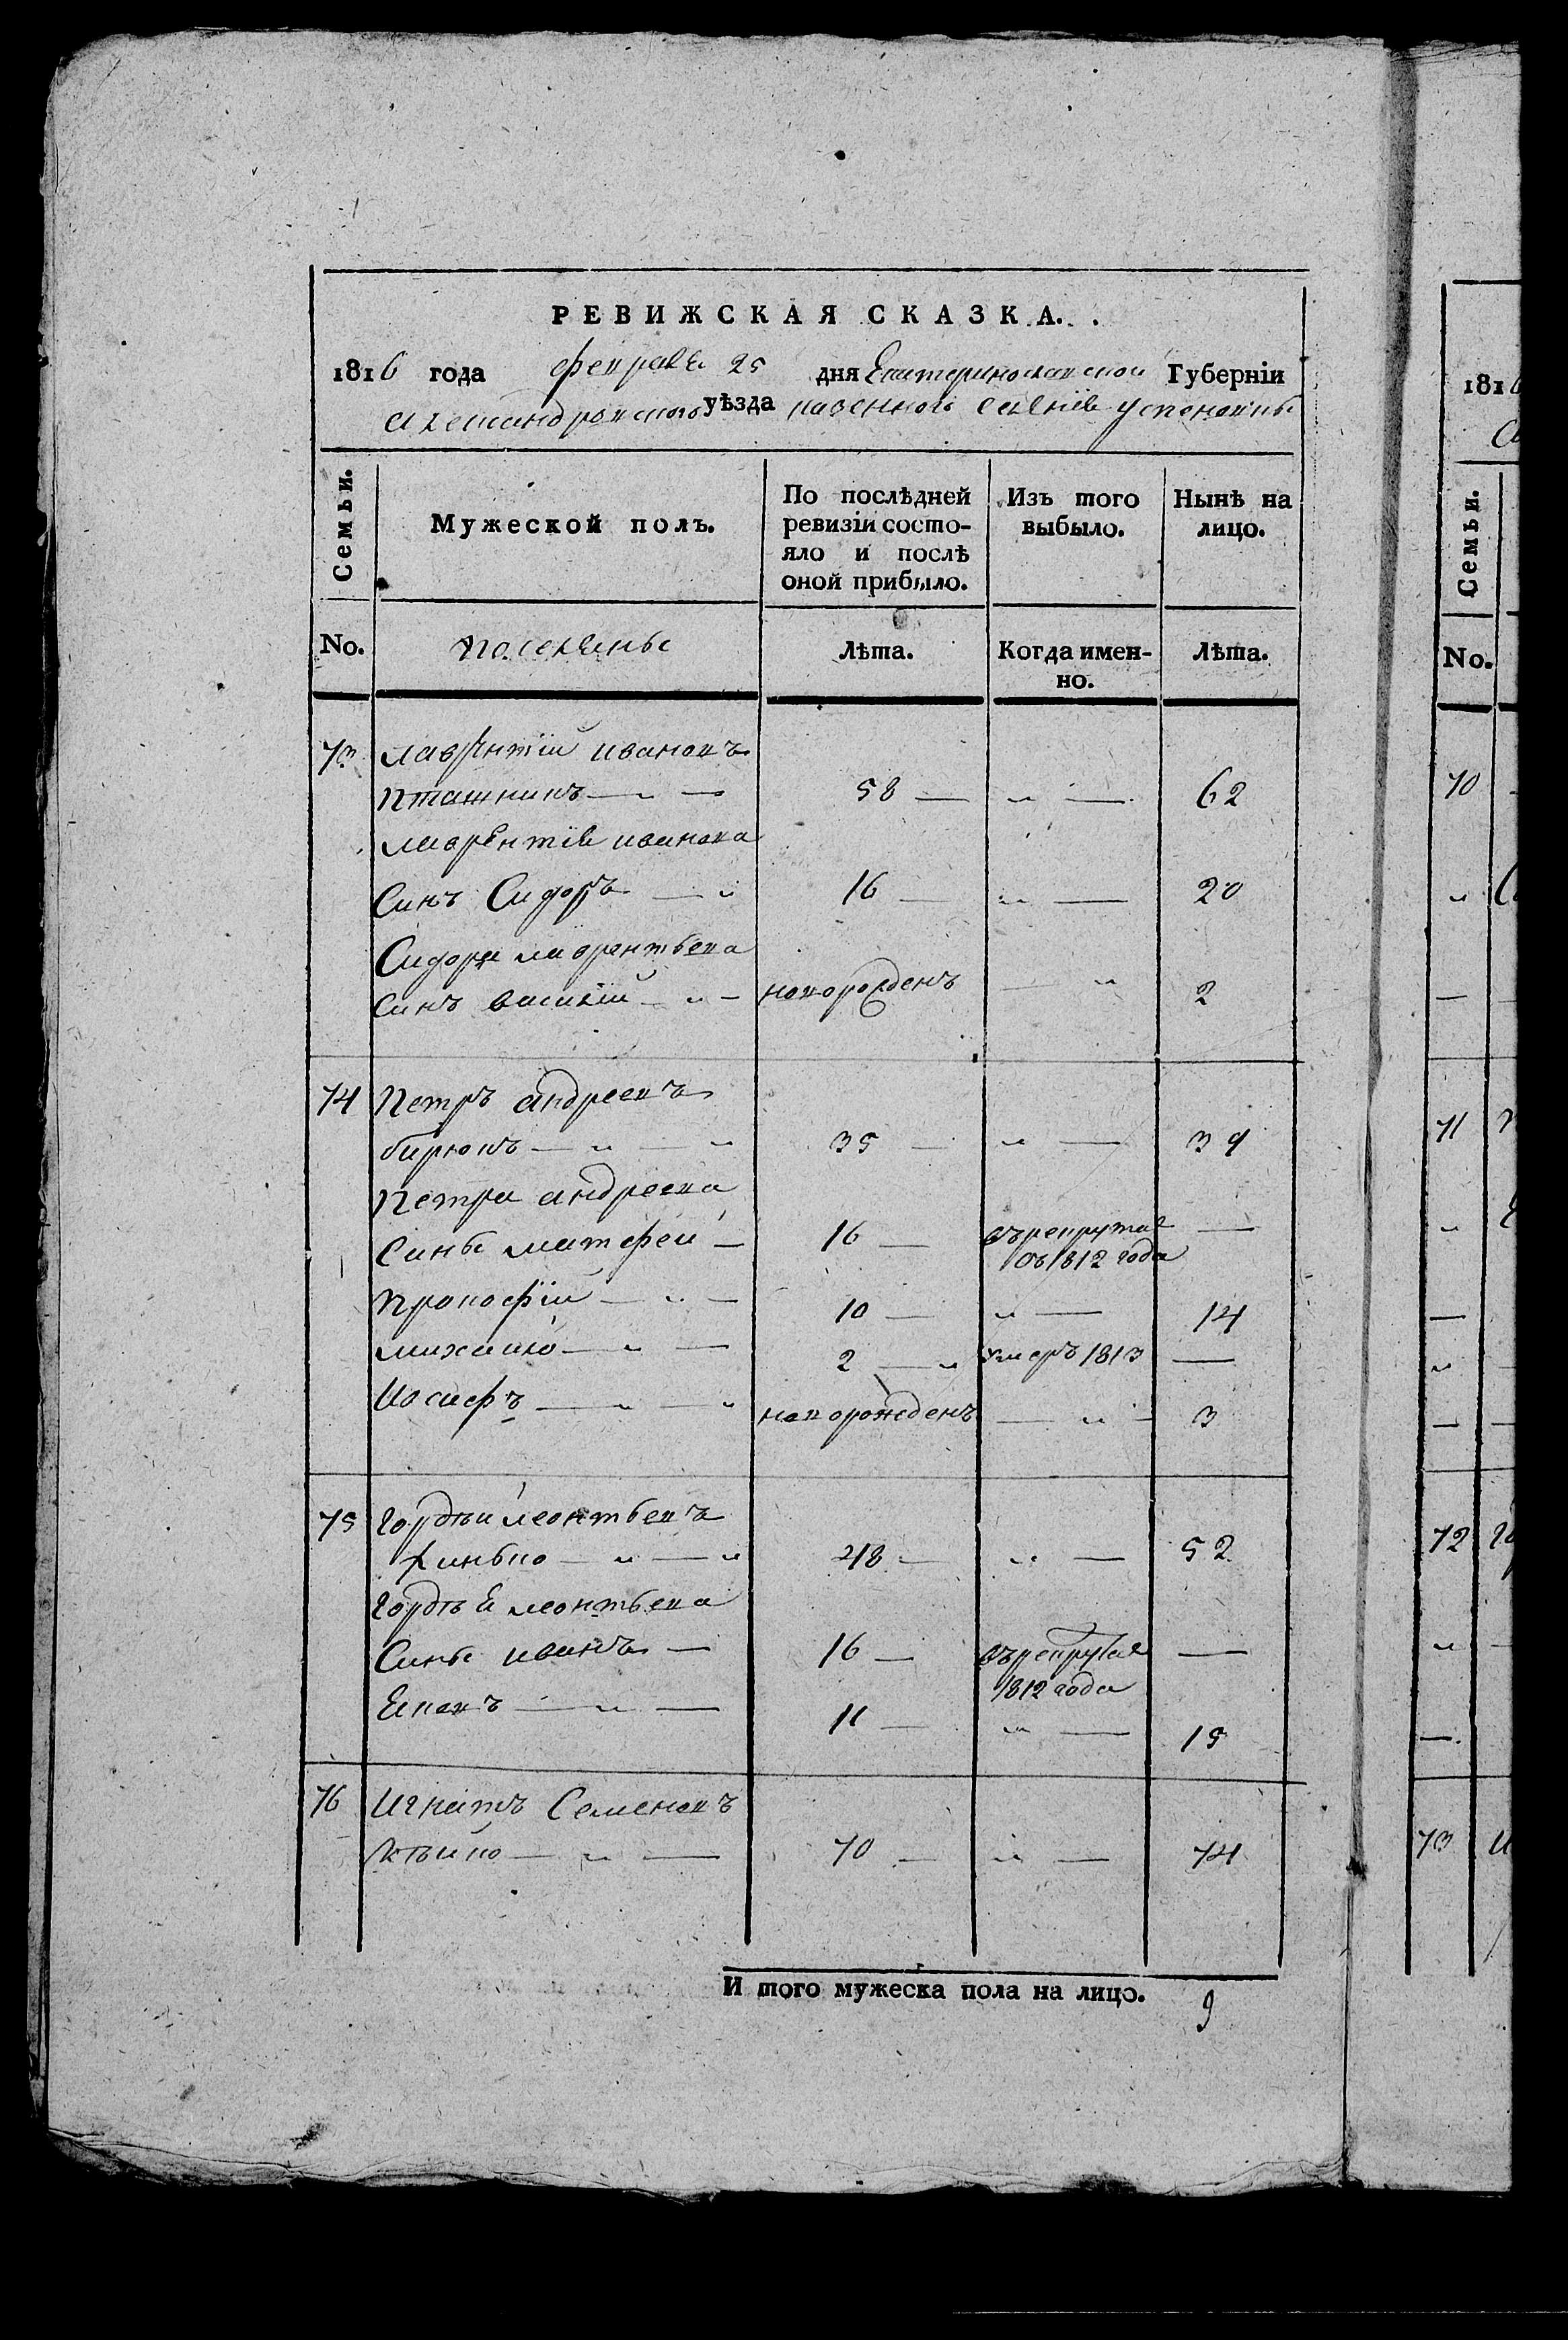 РЕВИЖСКАЯ СКАЗКА.
1816 года февраля 25 дня Екатеринославской Губерніи
Александровского уѣзда казенного селенія Успеновки
Семьи.
Мужеской полъ.
По послѣдней ревизіи состояло и послѣ оной прибыло.
Изъ того выбыло.
Нынѣ на лицо.
No.
поселяне
Лѣта.
Когда именно.
Лѣта.
73 лаврентій ивановъ
Пташникъ — 58 — 62
лаврентія иванова
Синъ Сидоръ — 16 — 20
Сидора лаврентьева
Синъ василій — новорожденъ — 2
74 Петръ андреевъ
бирюкъ — 35 — 39
Петра андреева
Сины матфей — 16 — въ рекрутахъ —
съ 1812 года
Прокофій — 10 — 14
михайло — 2 — умеръ 1813 —
Иосифъ — новорожденъ — 3
75 Гордѣй леонтьевъ
48 — 52
Гордѣя леонтьева
Сины иванъ — 16 — въ рекрутахъ —
1812 года
Яковъ — 11 — 15
76 Игнатъ Семеновъ
70 — 74
И того мужеска пола на лицо. 9
181
Семьи.
No.
70
71
72
73